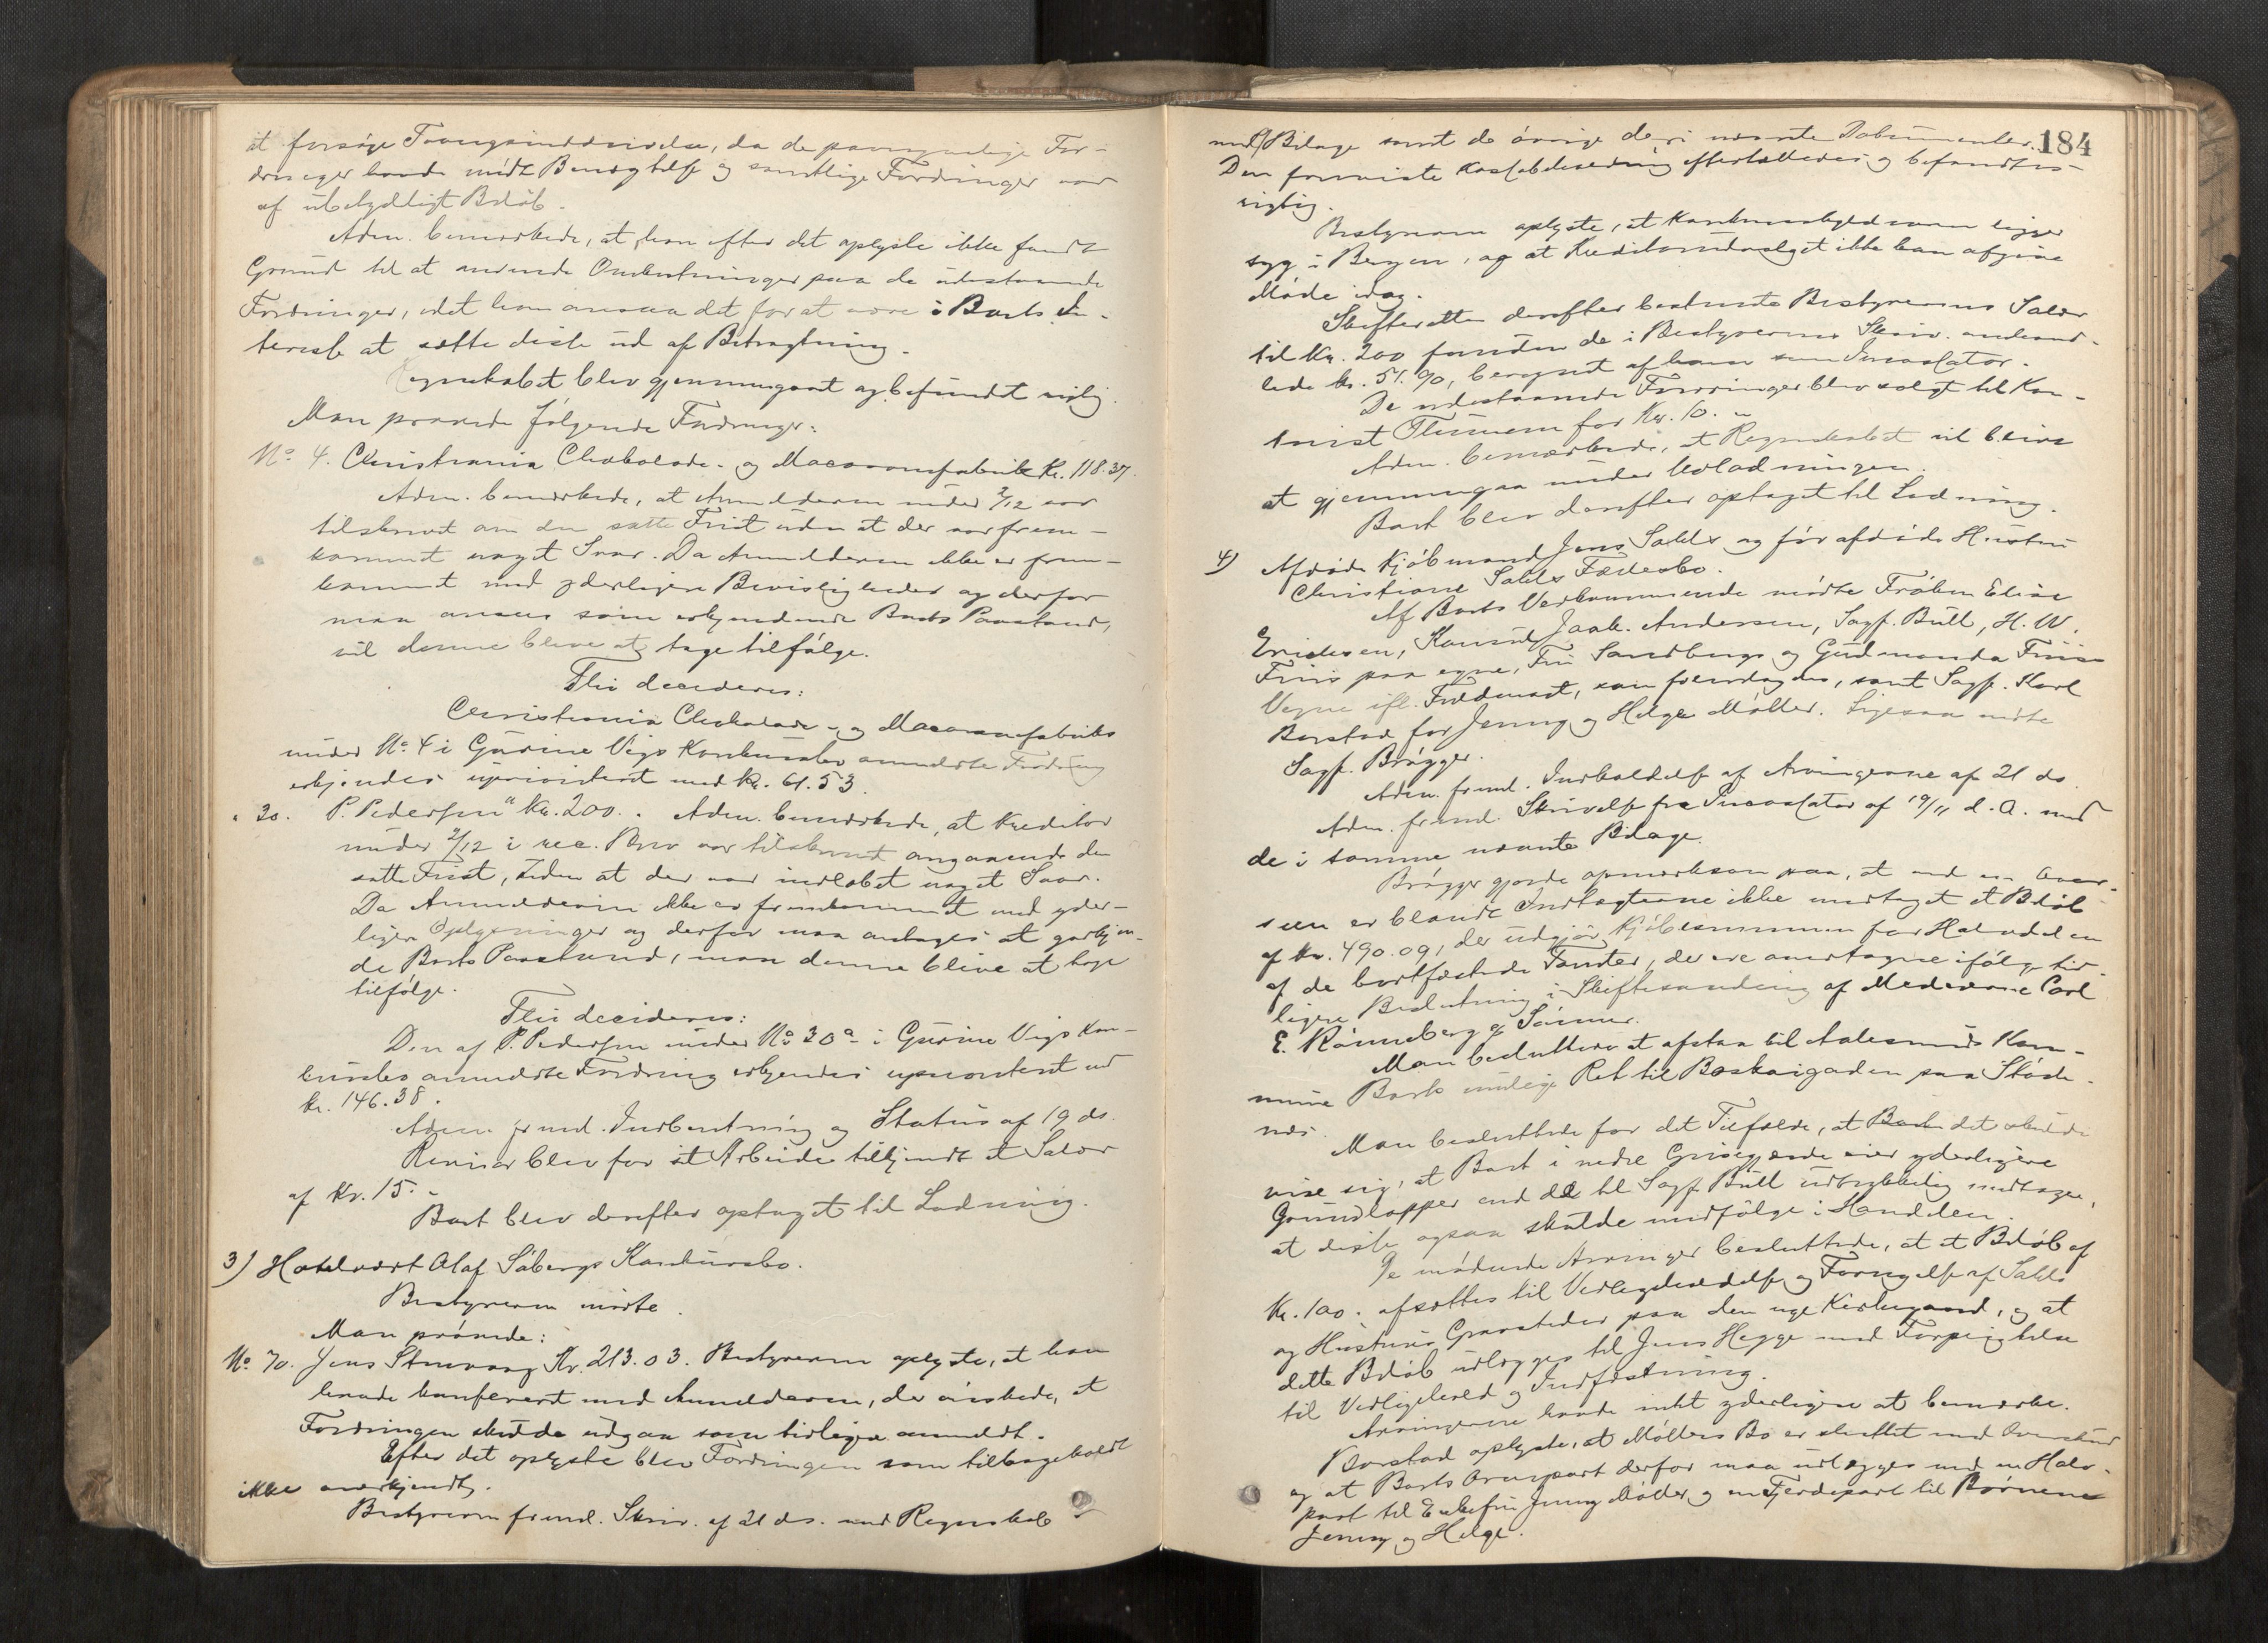 at forsøge Tvangsinddrivelse, da de paagjældende For-
dringer havde mødt Benægtelse og samtlige Fordringer var
af ubetydeligt Beløb.
Adm. bemærkede, at han efter det oplyste ikke fandt
Grund til at anvende Omkostninger paa de udestaaende
Fordringer, idet han ansaa det for at være i Boets In-
teresse at sætte disse ud af Betragtning.
Regnskabet blev gjennemgaaet og befundet rigtig.
Man prøvede følgende Fordringer:
No. 4. Christiania Chokolade- og Macaronifabrik Kr. 118.37.
Adm. bemærkede, at Anmelderen under 2/12 var
tilskrevet om den satte Frist uden at der var frem-
kommet noget Svar. Da Anmelderen ikke er frem-
kommet med yderligere Bevisligheder og derfor
maa ansees som erkjendende Boets Paastand,
vil denne blive at tage tilfølge.
Thi decideres:
Christiania Chokolade- og Macaronifabriks
under No. 4 i Gurine Vigs Konkursbo anmeldte Fordring
erkjendes uprioriteret med Kr. 61.53.
" 30. P. Pedersen Kr. 200. Adm. bemærkede, at Kreditor
under 2/12 i rec. Brev var tilskrevet angaaende den
satte Frist, uden at der var indløbet noget Svar.
Da Anmelderen ikke er fremkommet med yder-
ligere Oplysninger og derfor maa antages at godkjen-
de Boets Paastand, maa denne blive at tage
tilfølge.
Thi decideres:
Den af P. Pedersen under No. 30 a i Gurine Vigs Kon-
kursbo anmeldte Fordring erkjendes uprioriteret med
Kr. 146.38.
Adm. freml. Indberetning og Status af 19 ds.
Revisor blev for sit Arbeide tilkjendt et Salær
af Kr. 15.-
Boet blev derefter optaget til Slutning.
3) Hotelvært Olaf Søbergs Konkursbo.
Bestyreren mødte.
Man prøvede:
No. 70. Jens Kr. 213.03. Bestyreren oplyste, at han
havde konfereret med Anmelderen, der ønskede, at
Fordringen skulde udgaa som tidligere anmeldt.
Efter det oplyste blev Fordringen som tilbageholdt
ikke anerkjendt.
Bestyreren freml. Skriv. af 21 ds. med Regnskab
184
med Bilage samt de øvrige deri nævnte Dokumenter.
Den foreviste Kassabeholdning eftertælledes og befandtes
rigtig.
Bestyreren oplyste, at Konkursskyldneren ligger
syg i Bergen, og at Kreditorudvalget ikke kan afgive
Møde idag.
Skifteretten derefter bestemte Bestyrerens Salær
til Kr. 200 foruden de i Bestyrerens Skriv. omhand-
lede Kr. 51.90, beregnet af ham som Incassator.
De udestaaende Fordringer blev solgt til Kon-
torist for Kr. 10.-
Adm. bemærkede, at Regnskabet vil blive
at gjennemgaa under Udlodningen.
Boet blev derefter optaget til Slutning.
4) Afdøde Kjøbmand Jens Sahls og før afdøde Hustru
Christiane Sahls Fællesbo.
Af Boets Vedkommende mødte Frøken Elise
Eriksen, Konsul Joak. Andersen, Sagf. Bull, H. W.
Friis paa egne, Fru Sandbergs og Gudmunda Friis
Vegne ifl. Fuldmagt, som fremlagdes, samt Sagf. Karl
Borstad for Jenny og Helge Møller. Ligesaa mødte
Sagf. Brøgger.
Adm. freml. Indkaldelse af Arvingerne af 21 ds.
Adm. freml. Skrivelse fra Incassator af 19/11 d. A. med
de i samme nævnte Bilage.
Brøgger gjorde opmærksom paa, at ved en Over-
seen er blandt Indtægterne ikke medtaget et Beløb
af Kr. 490.09, der udgjør Kjøbesummen for Halvdelen
af de bortfæstede Tomter, der ere overtagne ifølge tid-
ligere Beslutning i Skiftesamling af Medeierne Carl
E. Rønneberg & Sønner.
Man besluttede at afstaa til Aalesunds Kom-
mune Boets mulige Ret til paa
næs.
Man besluttede for det Tilfælde, at det skulde
vise sig, at Boet i nedre eier yderligere
Grundlapper end de til Sagf. Bull udtrykkelig medtagne,
at disse ogsaa skulde medfølge i Handelen.
De mødende Arvinger besluttede, at et Beløb af
Kr. 100.- afsættes til Vedligeholdelse og Fornyelse af Sahls
og Hustrus Gravsteder paa den nye Kirkegaard, og at
dette Beløb udlægges til Jens Hegge med Forpligtelse
til Vedligehold og Indfæstning.
Arvingerne havde intet yderligere at bemærke.
Borstad oplyste, at Møllers Bo er sluttet med Overskud
og at Boets Arvepart derfor maa udlægges med en Halv-
part til Enkefru Jenny Møller og en Fjerdepart til Børnene
Jenny og Helge.